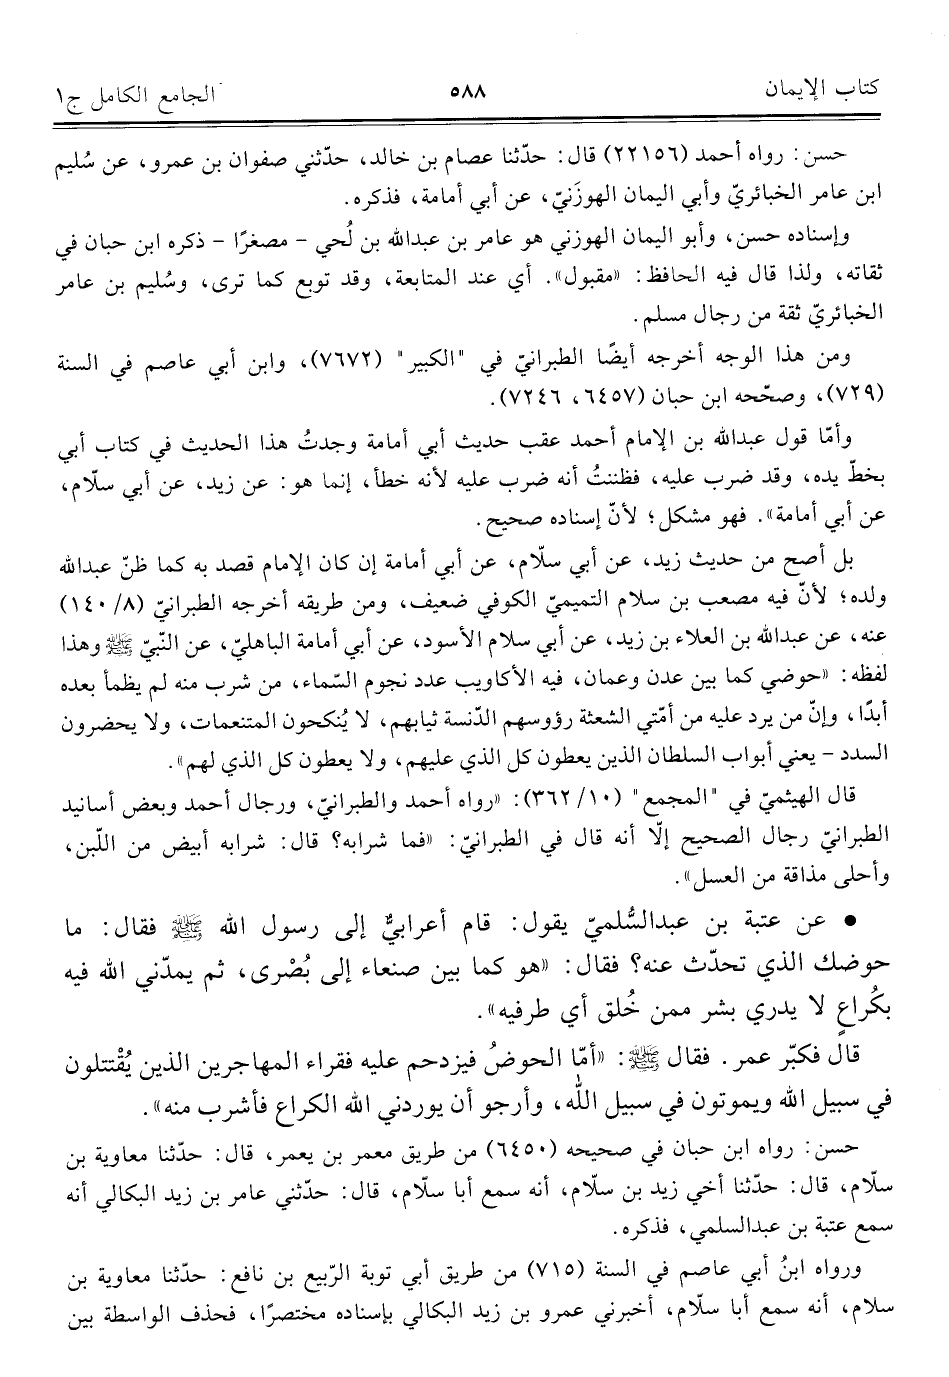 كتاب الإيمان ٥٨٨ الجامع الكامل ج١
حسن: رواه أحمد (٢٢١٥٦) قال: حدّثنا عصام بن خالد، حدّثني صفوان بن عمرو، عن سُليم
ابن عامر الخبائريّ وأبي اليمان الهوزَنيّ، عن أبي أمامة، فذكره.
وإسناده حسن، وأبو اليمان الهوزني هو عامر بن عبدالله بن لُحي - مصغرًا - ذكره ابن حبان في
ثقاته، ولذا قال فيه الحافظ: «مقبول». أي عند المتابعة، وقد توبع كما ترى، وسُليم بن عامر
الخبائريّ ثقة من رجال مسلم.
ومن هذا الوجه أخرجه أيضًا الطبرانيّ في "الكبير" (٧٦٧٢)، وابن أبي عاصم في السنة
(٧٢٩)، وصحّحه ابن حبان (٦٤٥٧، ٧٢٤٦).
وأمّا قول عبدالله بن الإمام أحمد عقب حديث أبي أمامة وجدتُ هذا الحديث في كتاب أبي
بخطّ يده، وقد ضرب عليه، فظننتُ أنه ضرب عليه لأنه خطأ، إنما هو: عن زيد، عن أبي سلّام،
عن أبي أمامة». فهو مشكل؛ لأنّ إسناده صحيح.
بل أصح من حديث زيد، عن أبي سلّام، عن أبي أمامة إن كان الإمام قصد به كما ظنّ عبدالله
ولده؛ لأنّ فيه مصعب بن سلام التميميّ الكوفي ضعيف، ومن طريقه أخرجه الطبرانيّ (٨/ ١٤٠)
عنه، عن عبدالله بن العلاء بن زيد، عن أبي سلام الأسود، عن أبي أمامة الباهليّ، عن النّبيّ ﷺ وهذا
لفظه: «حوضي كما بين عدن وعمان، فيه الأكاويب عدد نجوم السّماء، من شرب منه لم يظمأ بعده
أبدًا، وإنّ من يرد عليه من أمّتي الشعثة رؤوسهم الدّنسة ثيابهم، لا يُنكحون المتنعمات، ولا يحضرون
السدد - يعني أبواب السلطان الذين يعطون كل الذي عليهم، ولا يعطون كل الذي لهم».
قال الهيثميّ في "المجمع" (١٠/ ٣٦٢): «رواه أحمد والطبرانيّ، ورجال أحمد وبعض أسانيد
الطبرانيّ رجال الصحيح إلّا أنه قال في الطبرانيّ: «فما شرابه؟ قال: شرابه أبيض من اللّبن،
وأحلى مذاقة من العسل».
• عن عتبة بن عبدالسُّلميّ يقول: قام أعرابيٌّ إلى رسول الله ﷺ فقال: ما
حوضك الذي تحدّث عنه؟ فقال: «هو كما بين صنعاء إلى بُصْرى، ثم يمدّني الله فيه
بكُراعٍ لا يدري بشر ممن خُلق أي طرفيه».
قال فكبّر عمر. فقال ﷺ: «أمّا الحوضُ فيزدحم عليه فقراء المهاجرين الذين يُقْتتلون
في سبيل الله ويموتون في سبيل الله، وأرجو أن يوردني الله الكراع فأشرب منه».
حسن: رواه ابن حبان في صحيحه (٦٤٥٠) من طريق معمر بن يعمر، قال: حدّثنا معاوية بن
سلّام، قال: حدّثنا أخي زيد بن سلّام، أنه سمع أبا سلّام، قال: حدّثني عامر بن زيد البكالي أنه
سمع عتبة بن عبدالسلمي، فذكره.
ورواه ابنُ أبي عاصم في السنة (٧١٥) من طريق أبي توبة الرّبيع بن نافع: حدّثنا معاوية بن
سلام، أنه سمع أبا سلّام، أخبرني عمرو بن زيد البكالي بإسناده مختصرًا، فحذف الواسطة بين